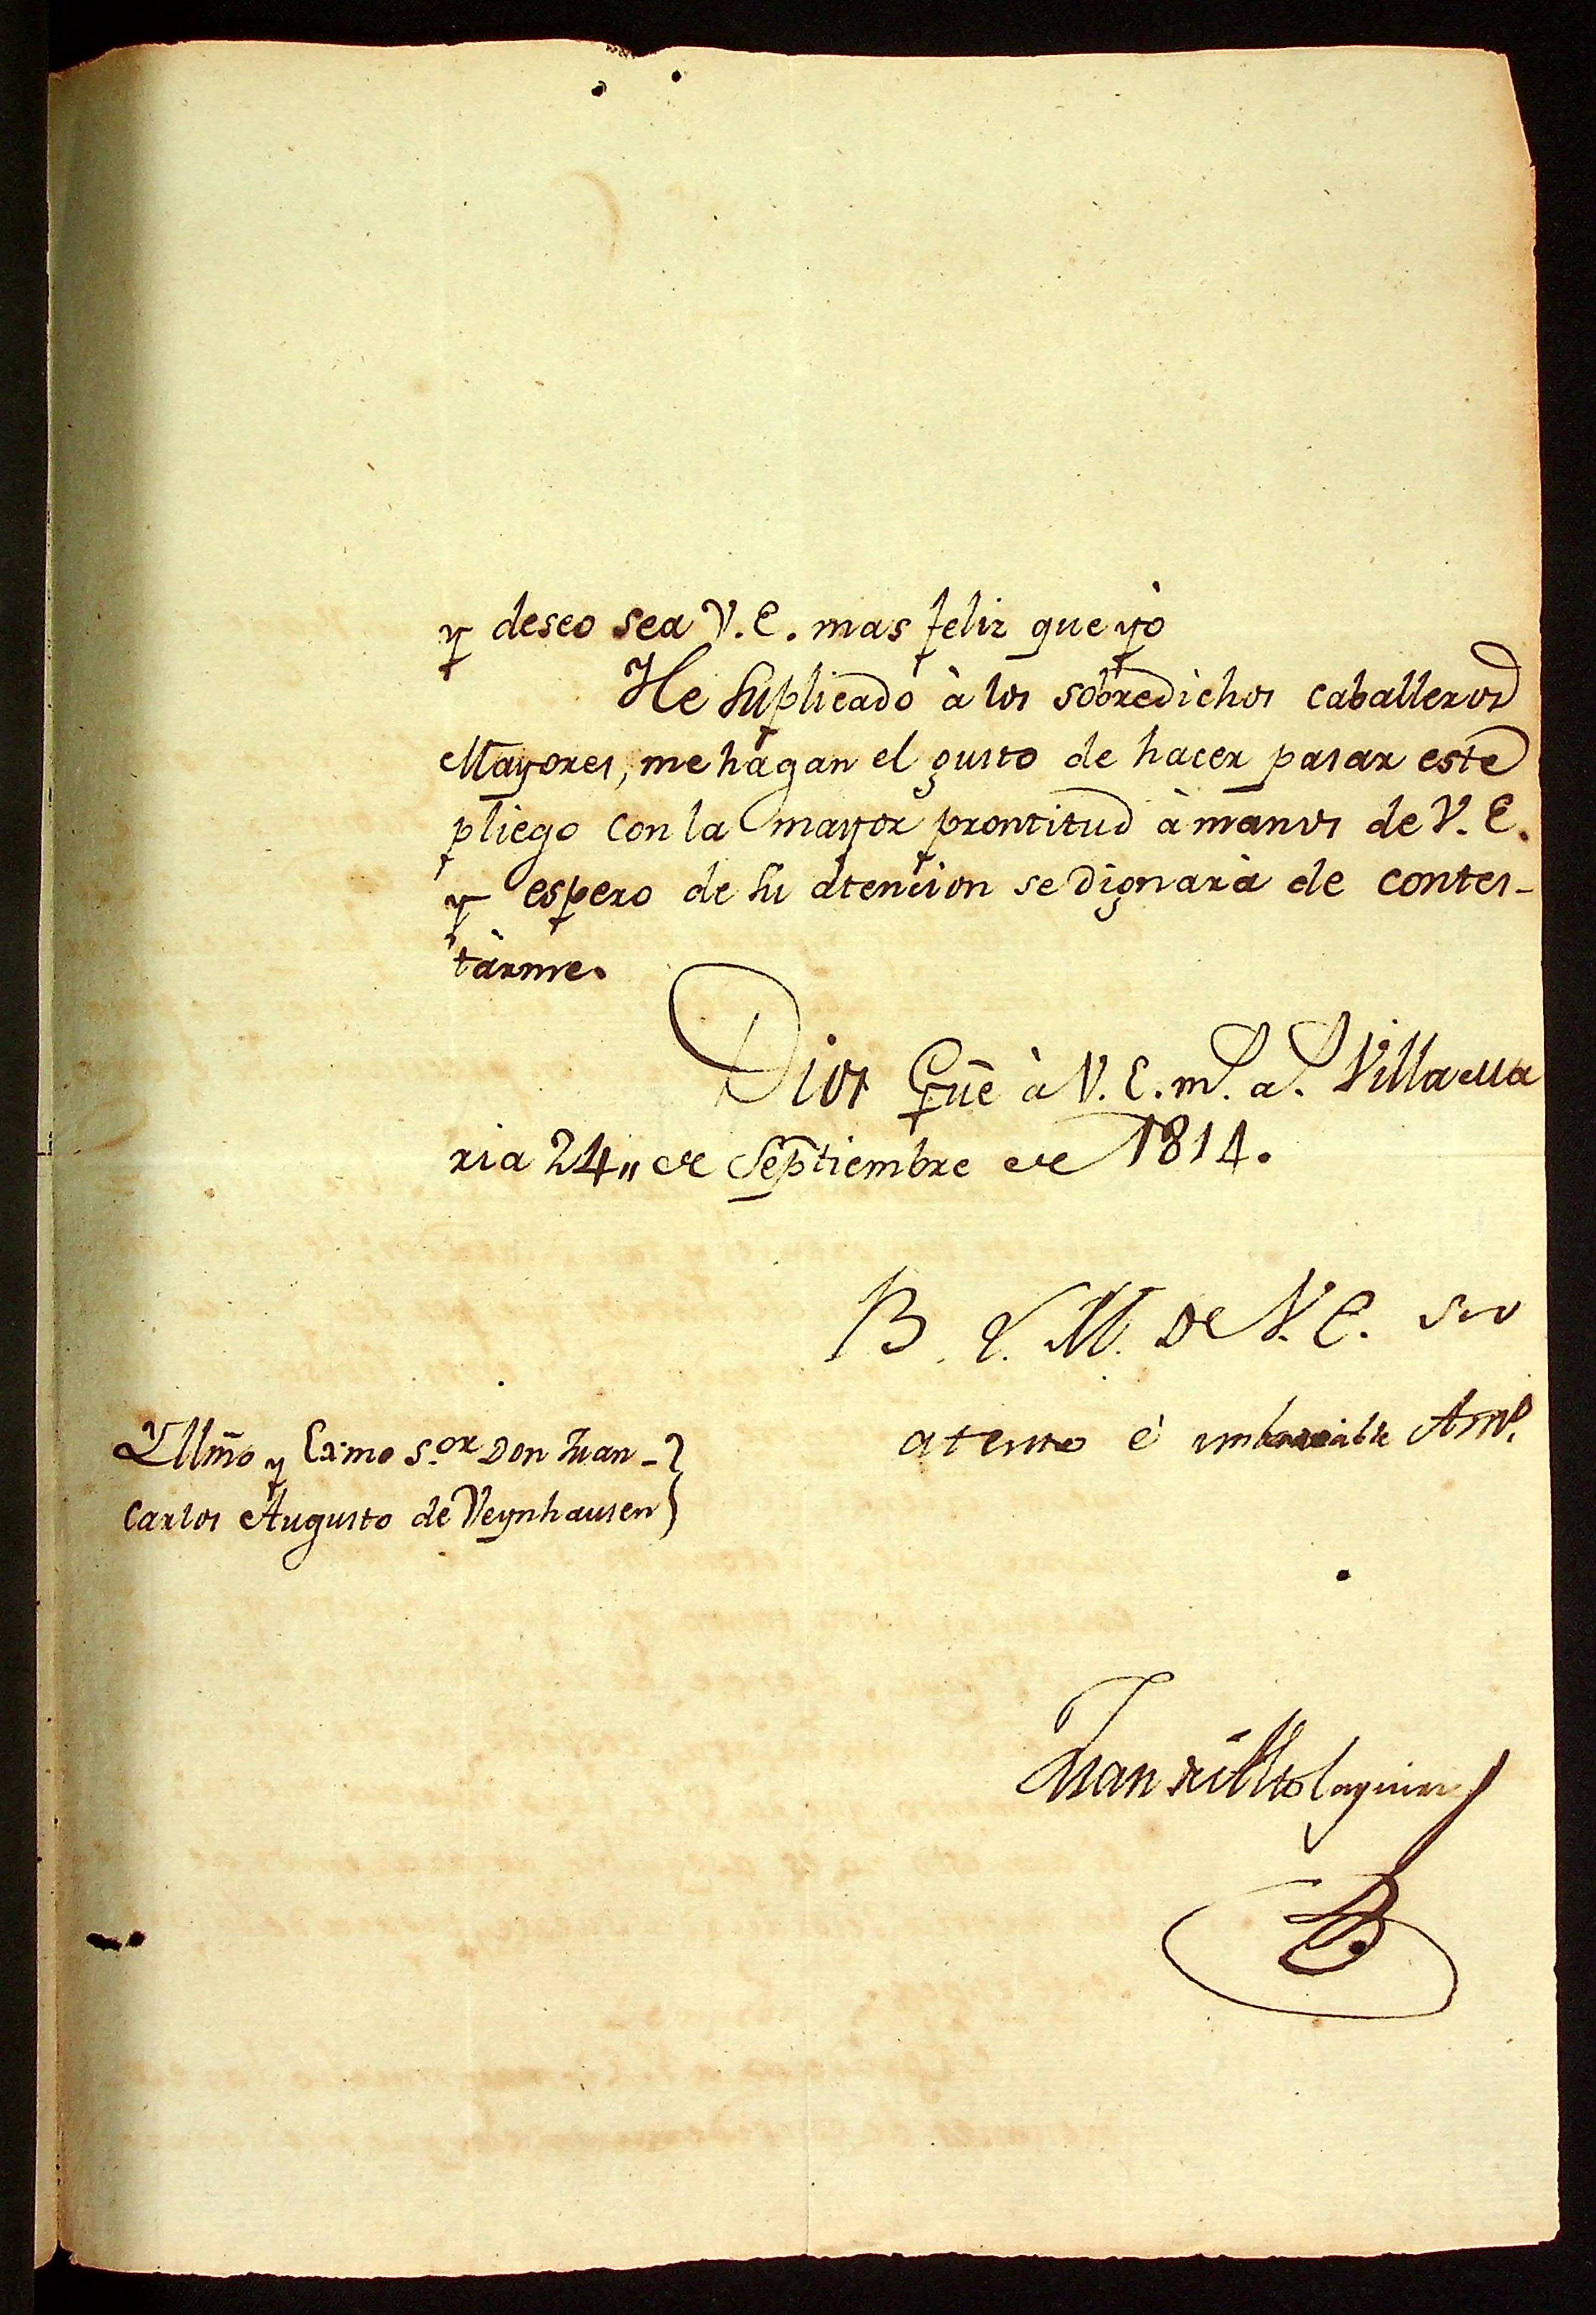 y deseo sea V. E. mas feliz que yò
He suplicado à los sobredichos caballeros
Mayores, me hagan el gusto de hacer pasar este
pliego con la mayor prontitud à manos de V. E.
y espero de su atencion se dignarà de contes-
tàrme.
Dios Gūe à V. E. m.s a.s Villa Ma
ria 24,, de Septiembre de 1814.
B. L. M. de V. E. su
atento è imbariable Am.o
Yllm̃o y Exmo S.or Don Juan -
Carlos Augusto de Veynhausen
Juan